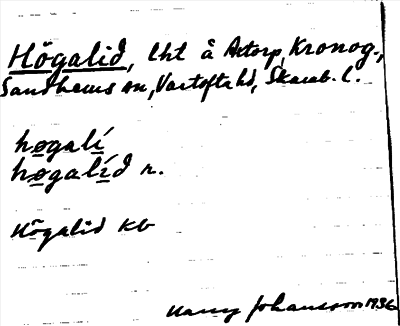 Högalid, lht å Åstorp, Kronog.,
Sandhems sn, Vartofta hd, Skarab. l.
högalí
högalíd r.
Högalid kb
Harry Johansson 1936